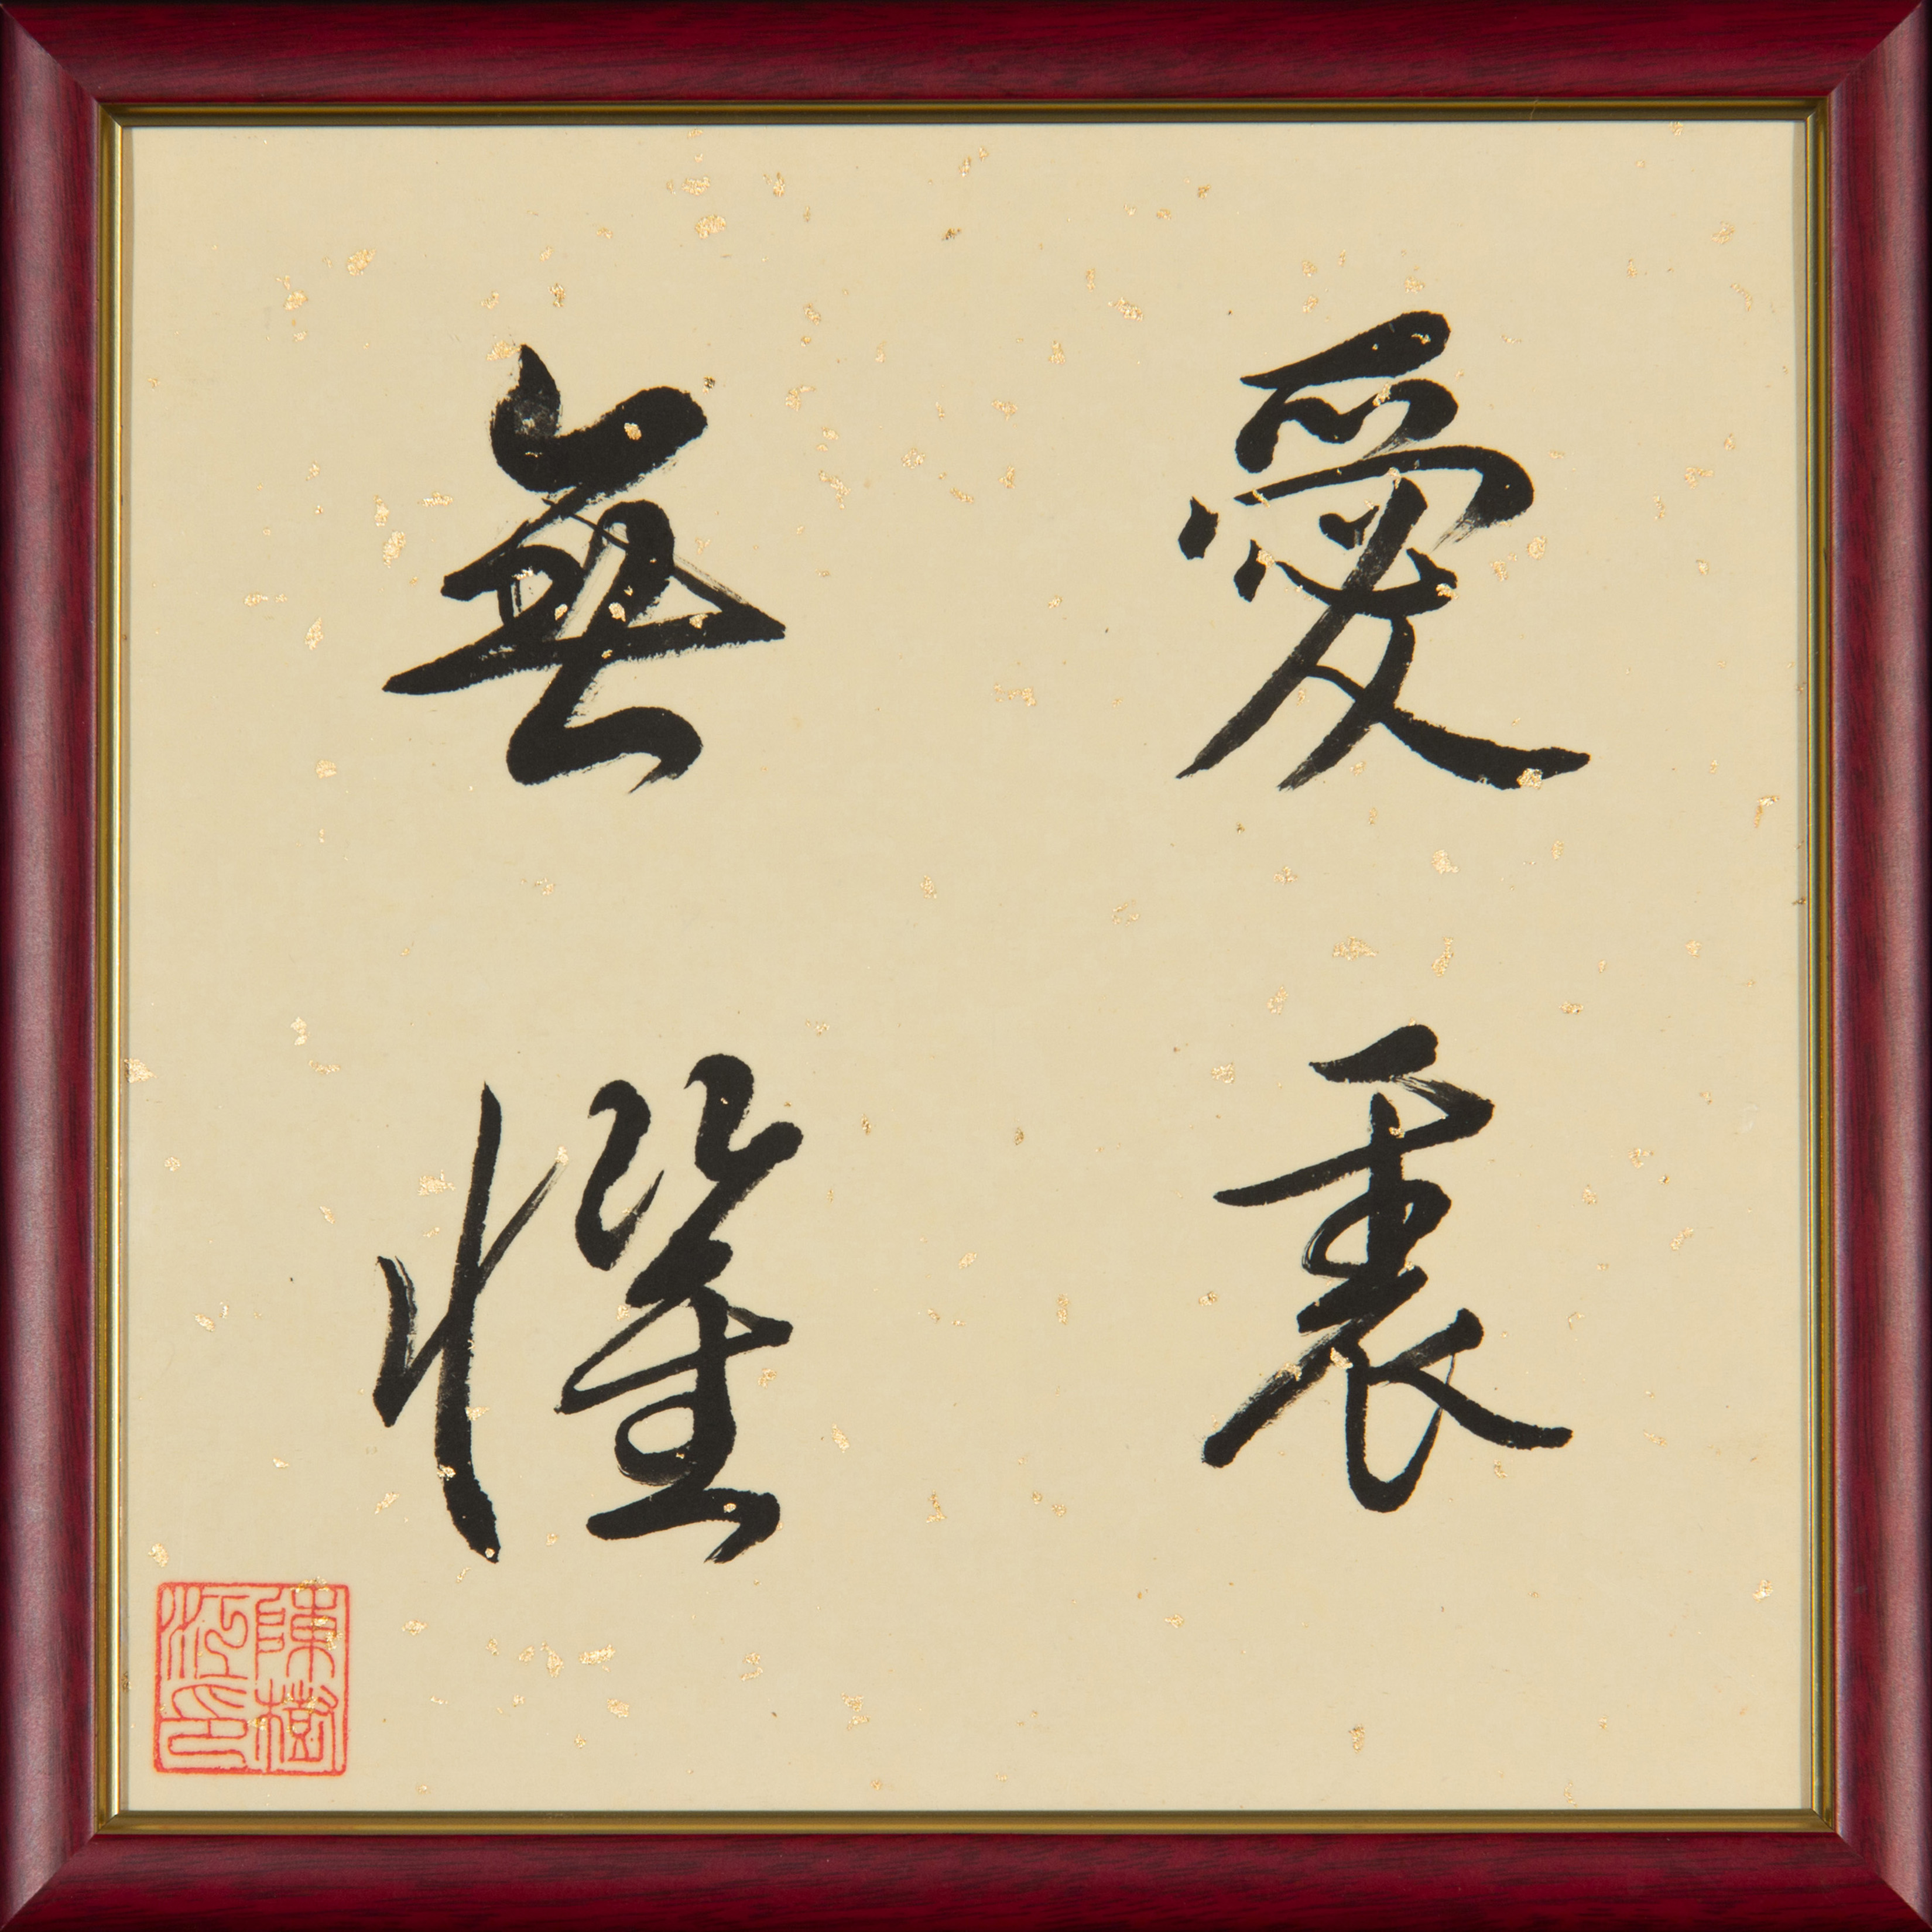 愛裏
無懼
陳樹
印